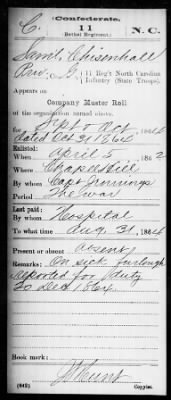 Confederate.
C. 11 N. C.
(Bethel Regiment.)
Sam'l Chisenhall
Pvt, Co. G, 11 Reg't North Carolina
Infantry (State Troops).
Appears on
Company Muster Roll
of the organization named above,
for Sept & Oct 1864
dated Dec 31 1864
Enlisted:
When April 5 1862
Where Chapel Hill
By whom Capt Jennings
Period The War
Last paid:
By whom Hospital
To what time Aug. 31, 1864
Present or absent absent
Remarks: On sick furlough
reported for duty
30 Dec 1864
Book mark:
(642) Copyist.